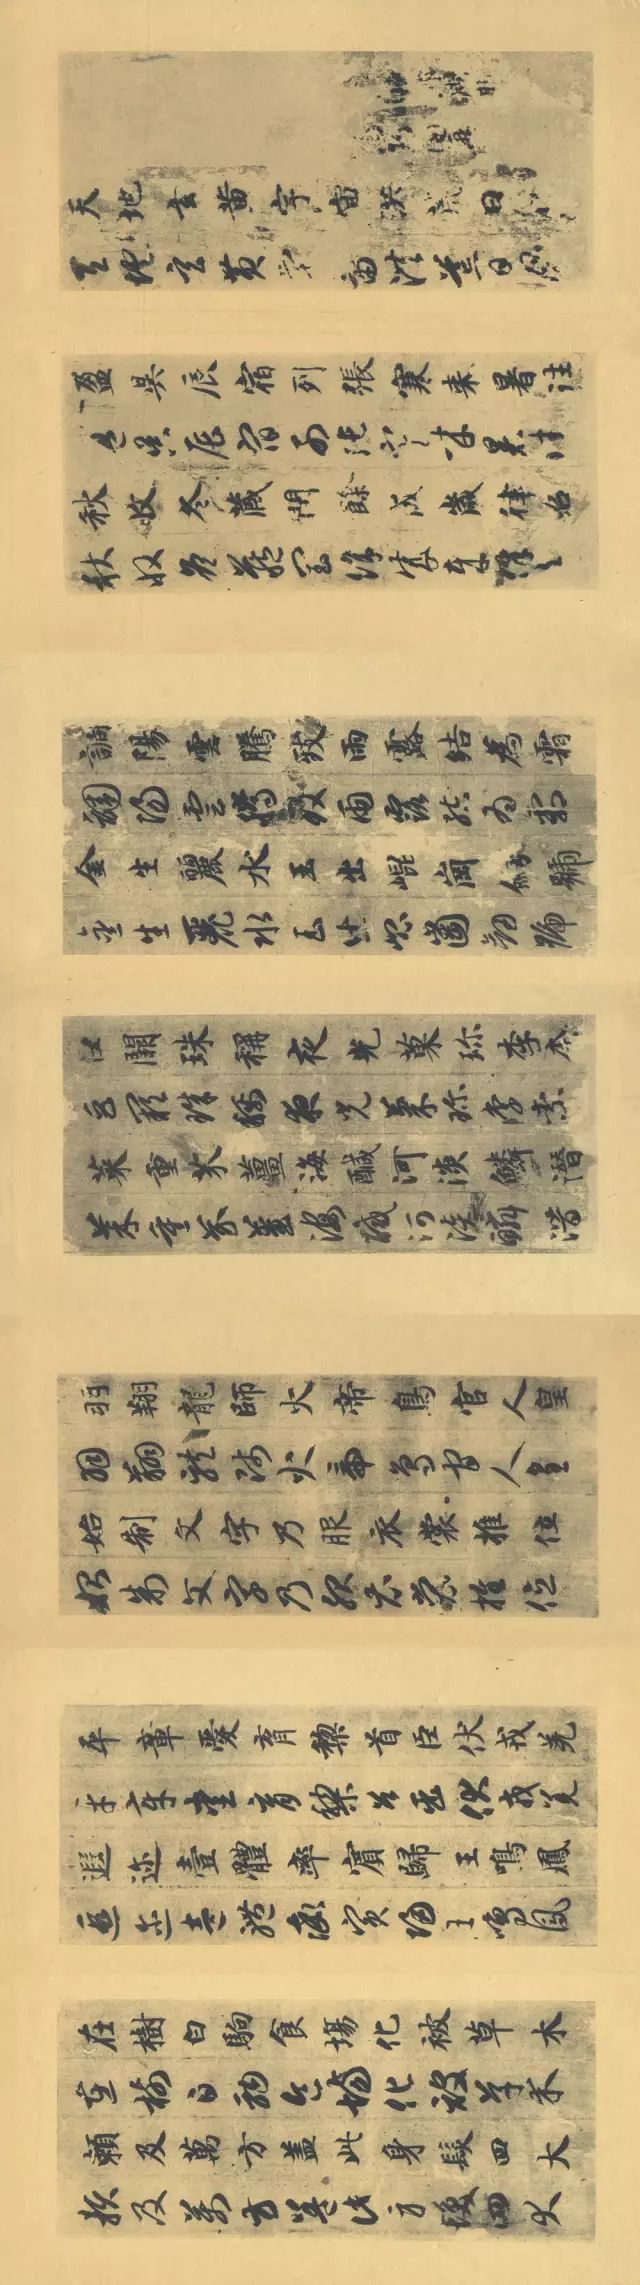 天地玄黃宇宙洪荒日月
天地玄黃宇宙洪荒日月
盈昃辰宿列張寒來暑往
盈昃辰宿列張寒來暑往
秋收冬藏閏餘成歲律呂
秋收冬藏閏餘成歲律呂
調陽雲騰致雨露結為霜
調陽雲騰致雨露結為霜
金生麗水玉出崐崗劒號
金生麗水玉出崐崗劒號
巨闕珠稱夜光菓珍李柰
巨闕珠稱夜光菓珍李柰
菜重芥薑海醎河淡鱗潛
菜重芥薑海醎河淡鱗潛
羽翔龍師火帝鳥官人皇
羽翔龍師火帝鳥官人皇
始制文字乃服衣裳推位
始制文字乃服衣裳推位
平章愛育黎首臣伏戎羌
平章愛育黎首臣伏戎羌
遐迩壹體率賓歸王鳴鳳
遐迩壹體率賓歸王鳴鳳
在樹白駒食場化被草木
在樹白駒食場化被草木
賴及萬方蓋此身髮四大
賴及萬方蓋此身髮四大